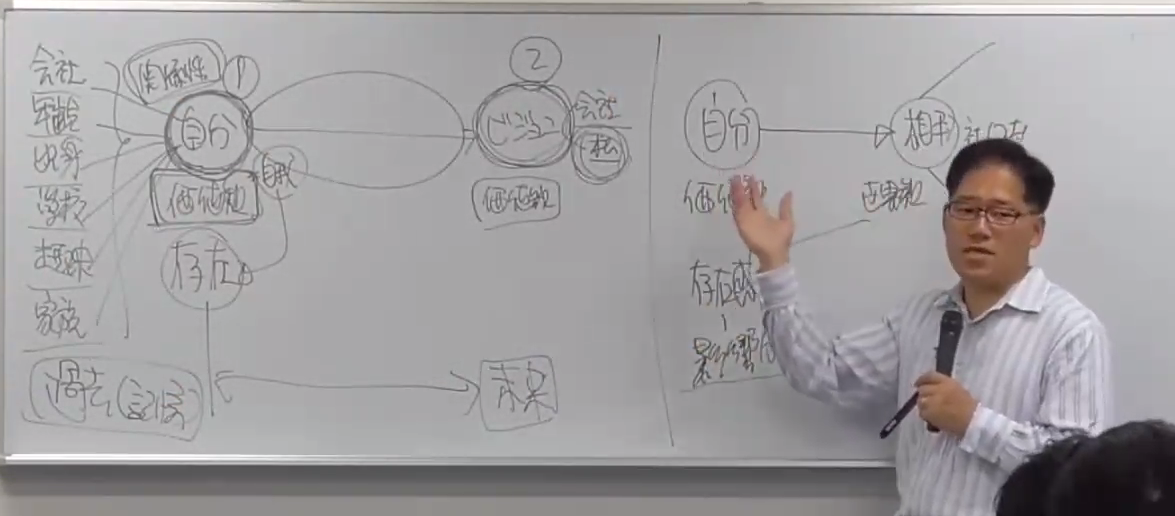 会社
年齢
出身
学校
趣味
家族
関係性
1
自分
価値観
自我
存在
過去(記憶)
2
ビジョン
会社
価値観
未来
自分
価値
存在感
影響
相手
世界観